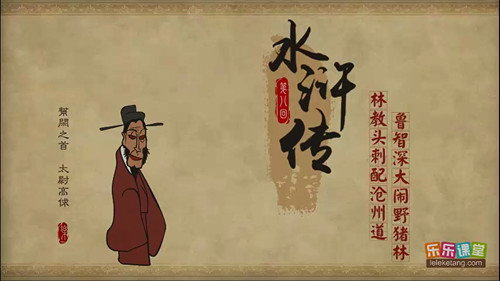 水浒传
第八回
林教头刺配沧州道
鲁智深大闹野猪林
幫閑之首 太尉高俅
乐乐课堂
leleketang.com